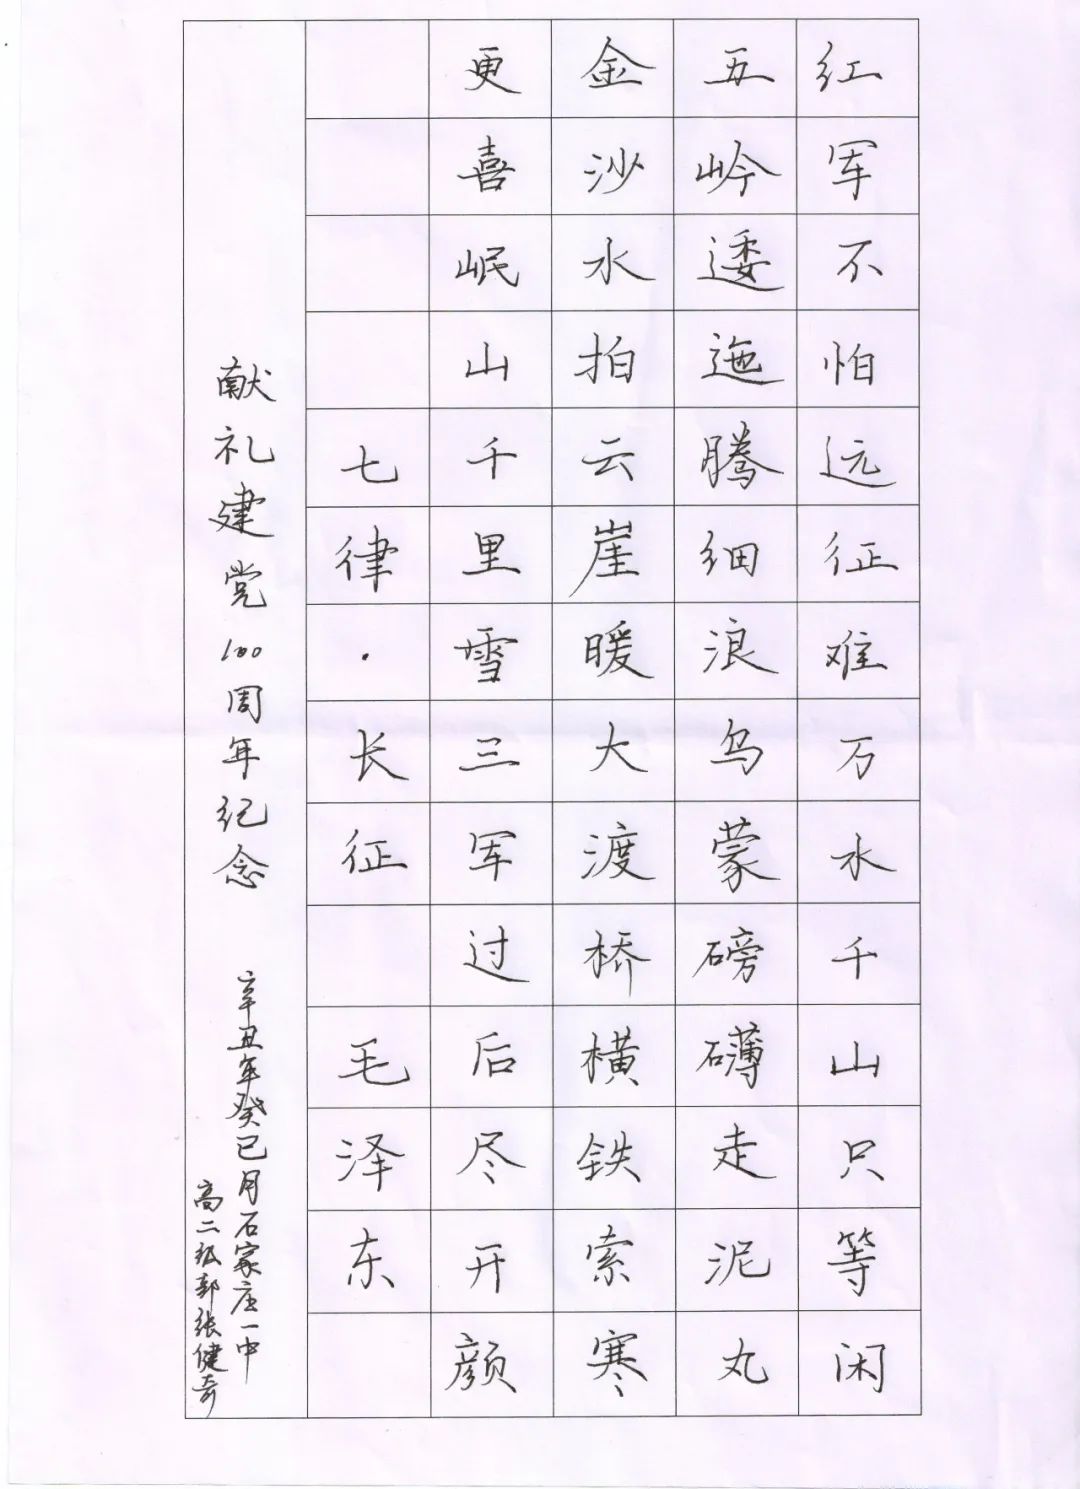 红军不怕远征难万水千山只等闲
五岭逶迤腾细浪乌蒙磅礴走泥丸
金沙水拍云崖暖大渡桥横铁索寒
更喜岷山千里雪三军过后尽开颜
七律·长征 毛泽东
献礼建党100周年纪念
辛丑年癸巳月石家庄一中
高二级部张健奇